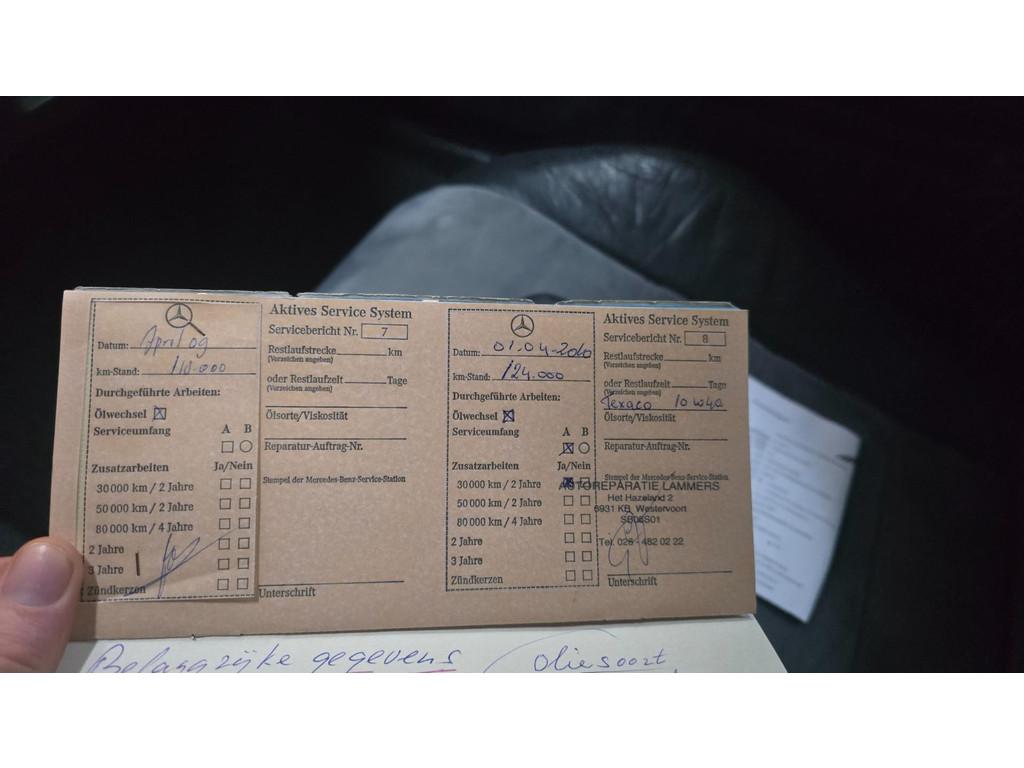 Datum: April 09
km-Stand: 110.000
Durchgeführte Arbeiten:
Ölwechsel
Serviceumfang A B
Zusatzarbeiten Ja/Nein
30 000 km / 2 Jahre
50 000 km / 2 Jahre
80 000 km / 4 Jahre
2 Jahre
3 Jahre
Zündkerzen
Aktives Service System
Servicebericht Nr. 7
Restlaufstrecke km
(Vorzeichen angeben)
oder Restlaufzeit Tage
(Vorzeichen angeben)
Ölsorte/Viskosität
Reparatur-Auftrag-Nr.
Stempel der Mercedes-Benz-Service-Station
Unterschrift
Datum: 01.04-2010
km-Stand: 124.000
Durchgeführte Arbeiten:
Ölwechsel
Serviceumfang A B
Zusatzarbeiten Ja/Nein
30 000 km / 2 Jahre
50 000 km / 2 Jahre
80 000 km / 4 Jahre
2 Jahre
3 Jahre
Zündkerzen
Aktives Service System
Servicebericht Nr. 8
Restlaufstrecke km
(Vorzeichen angeben)
oder Restlaufzeit Tage
(Vorzeichen angeben)
Texaco 10w40
Ölsorte/Viskosität
Reparatur-Auftrag-Nr.
Stempel der Mercedes-Benz-Service-Station
AUTOREPARATIE LAMMERS
Het Hazeland 2
6931 KB Westervoort
Tel. 026 - 482 02 22
Unterschrift
Belangrijke gegevens oliesoort